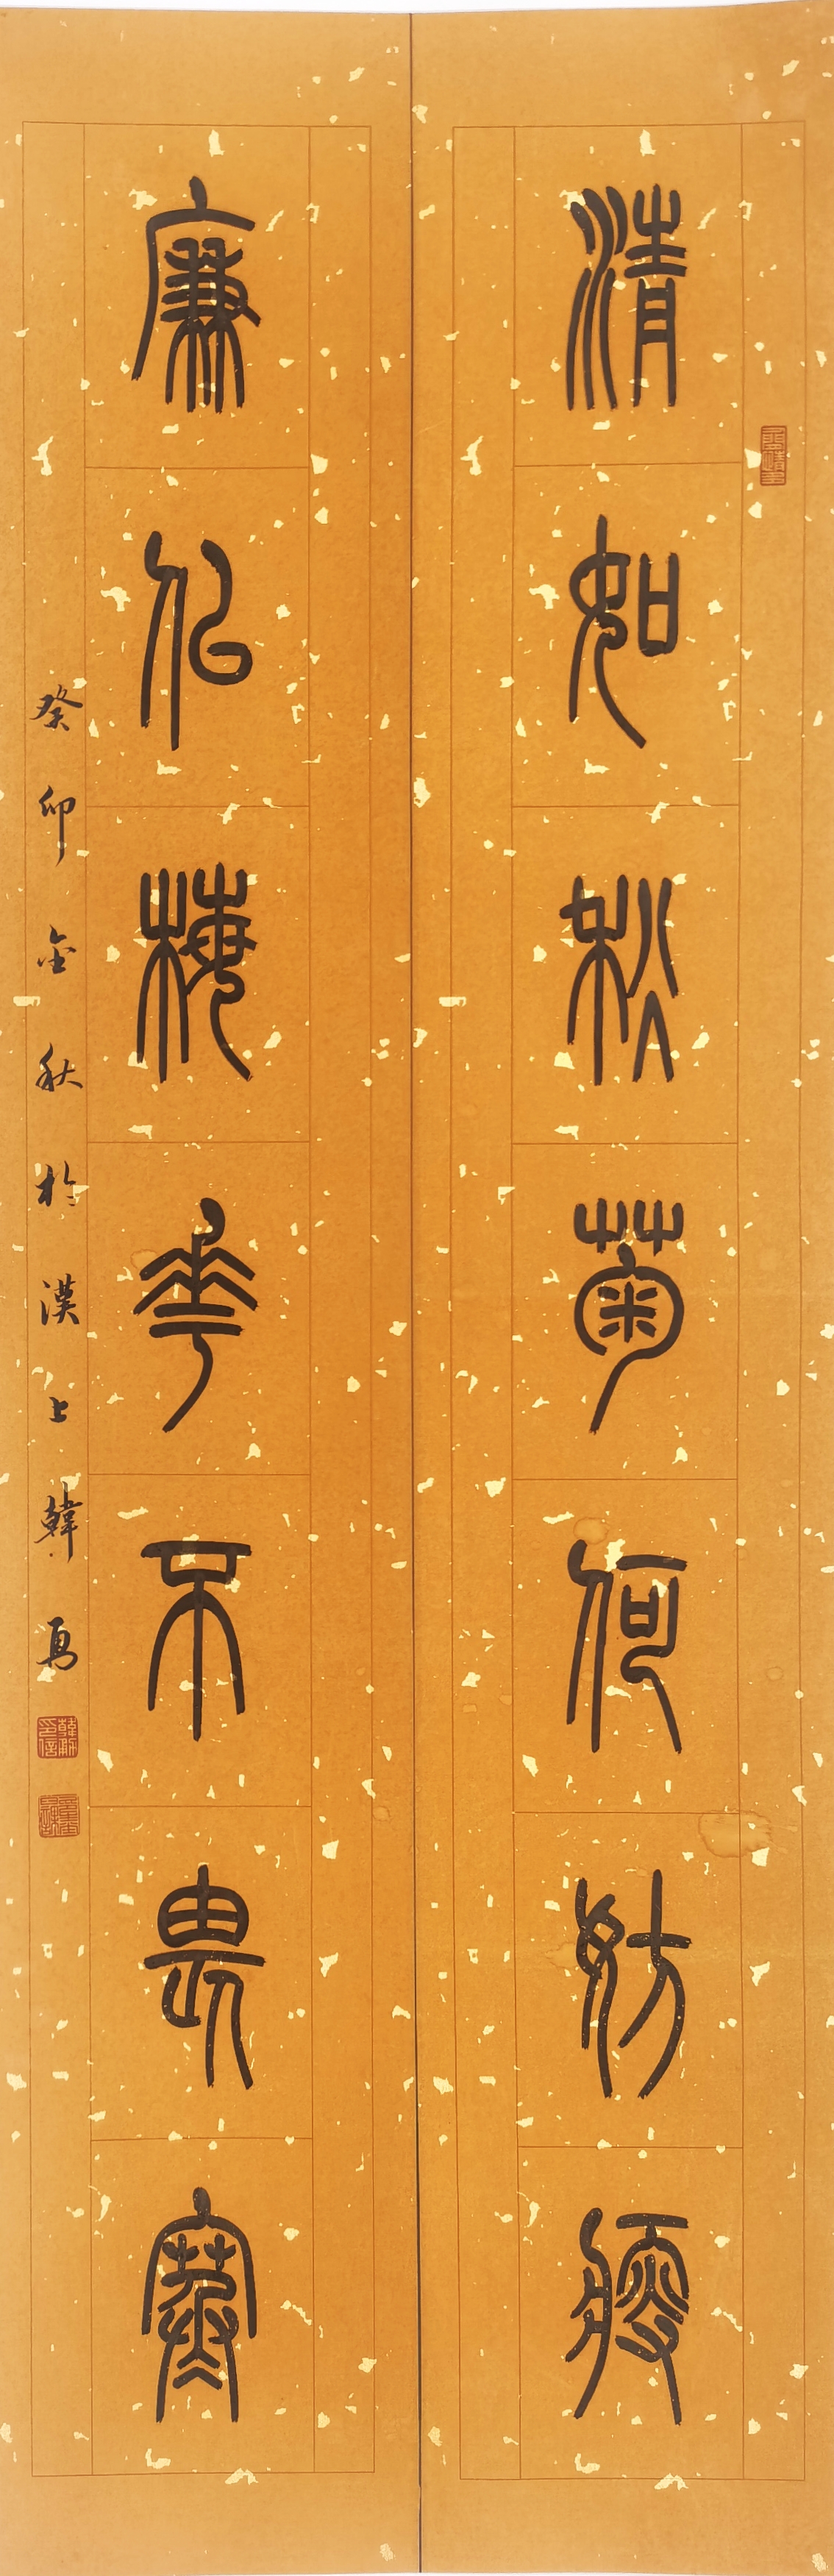 清如秋菊何妨瘦
廉似梅花不畏寒
癸卯金秋於漢上韓